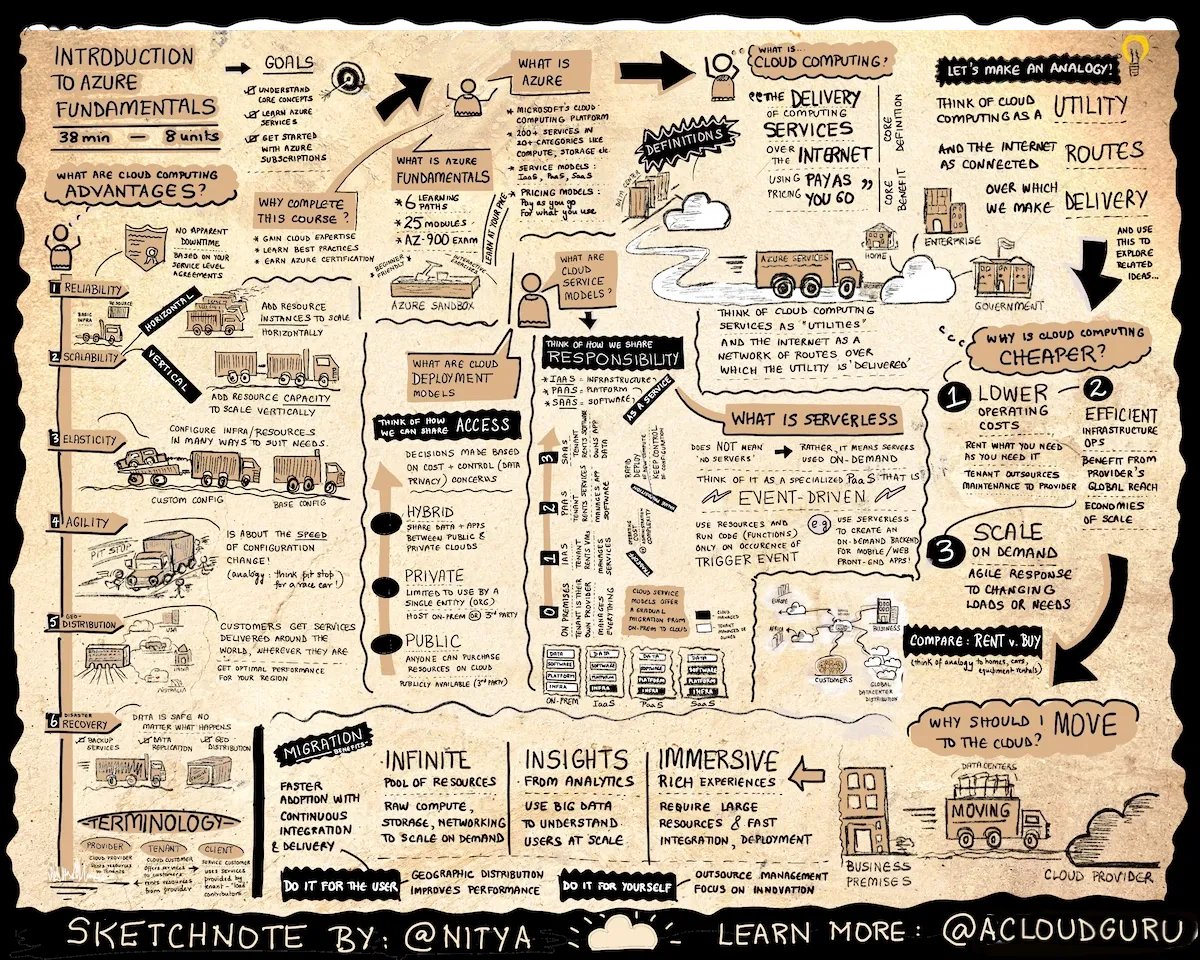 INTRODUCTION
TO AZURE
FUNDAMENTALS
38 min — 8 units
GOALS
UNDERSTAND
CORE CONCEPTS
LEARN AZURE
SERVICES
GET STARTED
WITH AZURE
SUBSCRIPTIONS
WHY COMPLETE
THIS COURSE?
* GAIN CLOUD EXPERTISE
* LEARN BEST PRACTICES
* EARN AZURE CERTIFICATION
WHAT IS AZURE
FUNDAMENTALS
* 6 LEARNING
PATHS
* 25 MODULES
* AZ-900 EXAM
LEARN AT YOUR PACE
BEGINNER
FRIENDLY
INTERACTIVE
EXERCISES
AZURE SANDBOX
WHAT IS
AZURE
* MICROSOFT'S CLOUD
COMPUTING PLATFORM
* 200+ SERVICES IN
20+ CATEGORIES LIKE
COMPUTE, STORAGE etc.
* SERVICE MODELS:
IaaS, PaaS, SaaS
* PRICING MODELS:
Pay as you go
For what you use
DEFINITIONS
WHAT IS...
CLOUD COMPUTING?
"THE DELIVERY
OF COMPUTING
SERVICES
OVER
THE INTERNET
USING
PRICING PAY AS
YOU GO"
CORE
DEFINITION
CORE
BENEFIT
LET'S MAKE AN ANALOGY!
THINK OF CLOUD
COMPUTING AS A UTILITY
AND THE INTERNET
AS CONNECTED ROUTES
OVER WHICH
WE MAKE DELIVERY
AND USE
THIS TO
EXPLORE
RELATED
IDEAS...
DATA CENTER
AZURE SERVICES
HOME
ENTERPRISE
GOVERNMENT
THINK OF CLOUD COMPUTING
SERVICES AS "UTILITIES"
AND THE INTERNET AS A
NETWORK OF ROUTES OVER
WHICH THE UTILITY IS 'DELIVERED'
WHAT ARE CLOUD COMPUTING
ADVANTAGES?
NO APPARENT
DOWNTIME
BASED ON YOUR
SERVICE LEVEL
AGREEMENTS
1 RELIABILITY
BASIC
INFRA
RESOURCE
HORIZONTAL
ADD RESOURCE
INSTANCES TO SCALE
HORIZONTALLY
2 SCALABILITY
VERTICAL
ADD RESOURCE CAPACITY
TO SCALE VERTICALLY
3 ELASTICITY
CONFIGURE INFRA/RESOURCES
IN MANY WAYS TO SUIT NEEDS.
CUSTOM CONFIG
BASE CONFIG
4 AGILITY
PIT STOP
IS ABOUT THE SPEED
OF CONFIGURATION
CHANGE!
(analogy: think pit stop
for a race car!)
5 GEO-
DISTRIBUTION
USA
INDIA
AUSTRALIA
CUSTOMERS GET SERVICES
DELIVERED AROUND THE
WORLD, WHEREVER THEY ARE
GET OPTIMAL PERFORMANCE
FOR YOUR REGION
6 DISASTER
RECOVERY
DATA IS SAFE NO
MATTER WHAT HAPPENS
BACKUP
SERVICES
DATA
REPLICATION
GEO
DISTRIBUTION
TERMINOLOGY
PROVIDER
CLOUD PROVIDER
rents resources
to tenants
TENANT
CLOUD CUSTOMER
Offers services
to customers
rents resources
from provider
CLIENT
SERVICE CUSTOMER
uses services
provided by
tenant - "load"
contributors
WHAT ARE CLOUD
DEPLOYMENT
MODELS
THINK OF HOW
WE CAN SHARE ACCESS
DECISIONS MADE BASED
ON COST + CONTROL (DATA
PRIVACY) CONCERNS
HYBRID
SHARE DATA + APPS
BETWEEN PUBLIC &
PRIVATE CLOUDS
PRIVATE
LIMITED TO USE BY A
SINGLE ENTITY (ORG)
HOST ON-PREM OR 3rd PARTY
PUBLIC
ANYONE CAN PURCHASE
RESOURCES ON CLOUD
PUBLICLY AVAILABLE (3rd PARTY)
WHAT ARE
CLOUD
SERVICE
MODELS?
THINK OF HOW WE SHARE
RESPONSIBILITY
* IAAS = INFRASTRUCTURE
* PAAS = PLATFORM
* SAAS = SOFTWARE
AS A SERVICE
3
SAAS
TENANT
RENTS SOFTWARE
OWNS APP
DATA
2
PAAS
TENANT
RENTS SERVICES
MANAGES APP
SOFTWARE
1
IAAS
TENANT
RENTS VMs
MANAGES
SERVICES
0
ON PREMISES
TENANT IS THEIR
OWN PROVIDER
MANAGES
EVERYTHING
RAPID
DEPLOY
KEEP CONTROL
OF CONFIGURATION
CLOUD SERVICE
MODELS OFFER
A GRADUAL
MIGRATION FROM
ON-PREM TO CLOUD
CLOUD
MANAGED
TENANT
MANAGED OR
OWNED
DATA
SOFTWARE
PLATFORM
INFRA
ON-PREM
DATA
SOFTWARE
PLATFORM
INFRA
IaaS
DATA
SOFTWARE
PLATFORM
INFRA
PaaS
DATA
SOFTWARE
PLATFORM
INFRA
SaaS
WHAT IS SERVERLESS
DOES NOT MEAN
'NO SERVERS'
RATHER, IT MEANS SERVERS
USED ON-DEMAND
THINK OF IT AS A SPECIALIZED PaaS THAT IS
EVENT-DRIVEN
USE RESOURCES AND
RUN CODE (FUNCTIONS)
ONLY ON OCCURENCE OF
TRIGGER EVENT
eg
USE SERVERLESS
TO CREATE AN
ON-DEMAND BACKEND
FOR MOBILE/WEB
FRONT-END APPS!
WHY IS CLOUD COMPUTING
CHEAPER?
1 LOWER
OPERATING
COSTS
RENT WHAT YOU NEED
AS YOU NEED IT
TENANT OUTSOURCES
MAINTENANCE TO PROVIDER
2
EFFICIENT
INFRASTRUCTURE
OPS
BENEFIT FROM
PROVIDER'S
GLOBAL REACH
ECONOMIES
OF SCALE
3 SCALE
ON DEMAND
AGILE RESPONSE
TO CHANGING
LOADS OR NEEDS
EUROPE
AFRICA
BUSINESS
CUSTOMERS
GLOBAL
DATACENTER
DISTRIBUTION
COMPARE: RENT v. BUY
(think of analogy to homes, cars,
equipment rentals)
WHY SHOULD I
TO THE CLOUD? MOVE
DATA CENTERS
MOVING
BUSINESS
PREMISES
CLOUD PROVIDER
MIGRATION
BENEFITS
FASTER
ADOPTION WITH
CONTINUOUS
INTEGRATION
& DELIVERY
INFINITE
POOL OF RESOURCES
RAW COMPUTE,
STORAGE, NETWORKING
TO SCALE ON DEMAND
INSIGHTS
FROM ANALYTICS
USE BIG DATA
TO UNDERSTAND
USERS AT SCALE.
IMMERSIVE
RICH EXPERIENCES
REQUIRE LARGE
RESOURCES & FAST
INTEGRATION, DEPLOYMENT
DO IT FOR THE USER
GEOGRAPHIC DISTRIBUTION
IMPROVES PERFORMANCE
DO IT FOR YOURSELF
OUTSOURCE MANAGEMENT
FOCUS ON INNOVATION
SKETCHNOTE BY: @NITYA
LEARN MORE: @ACLOUDGURU